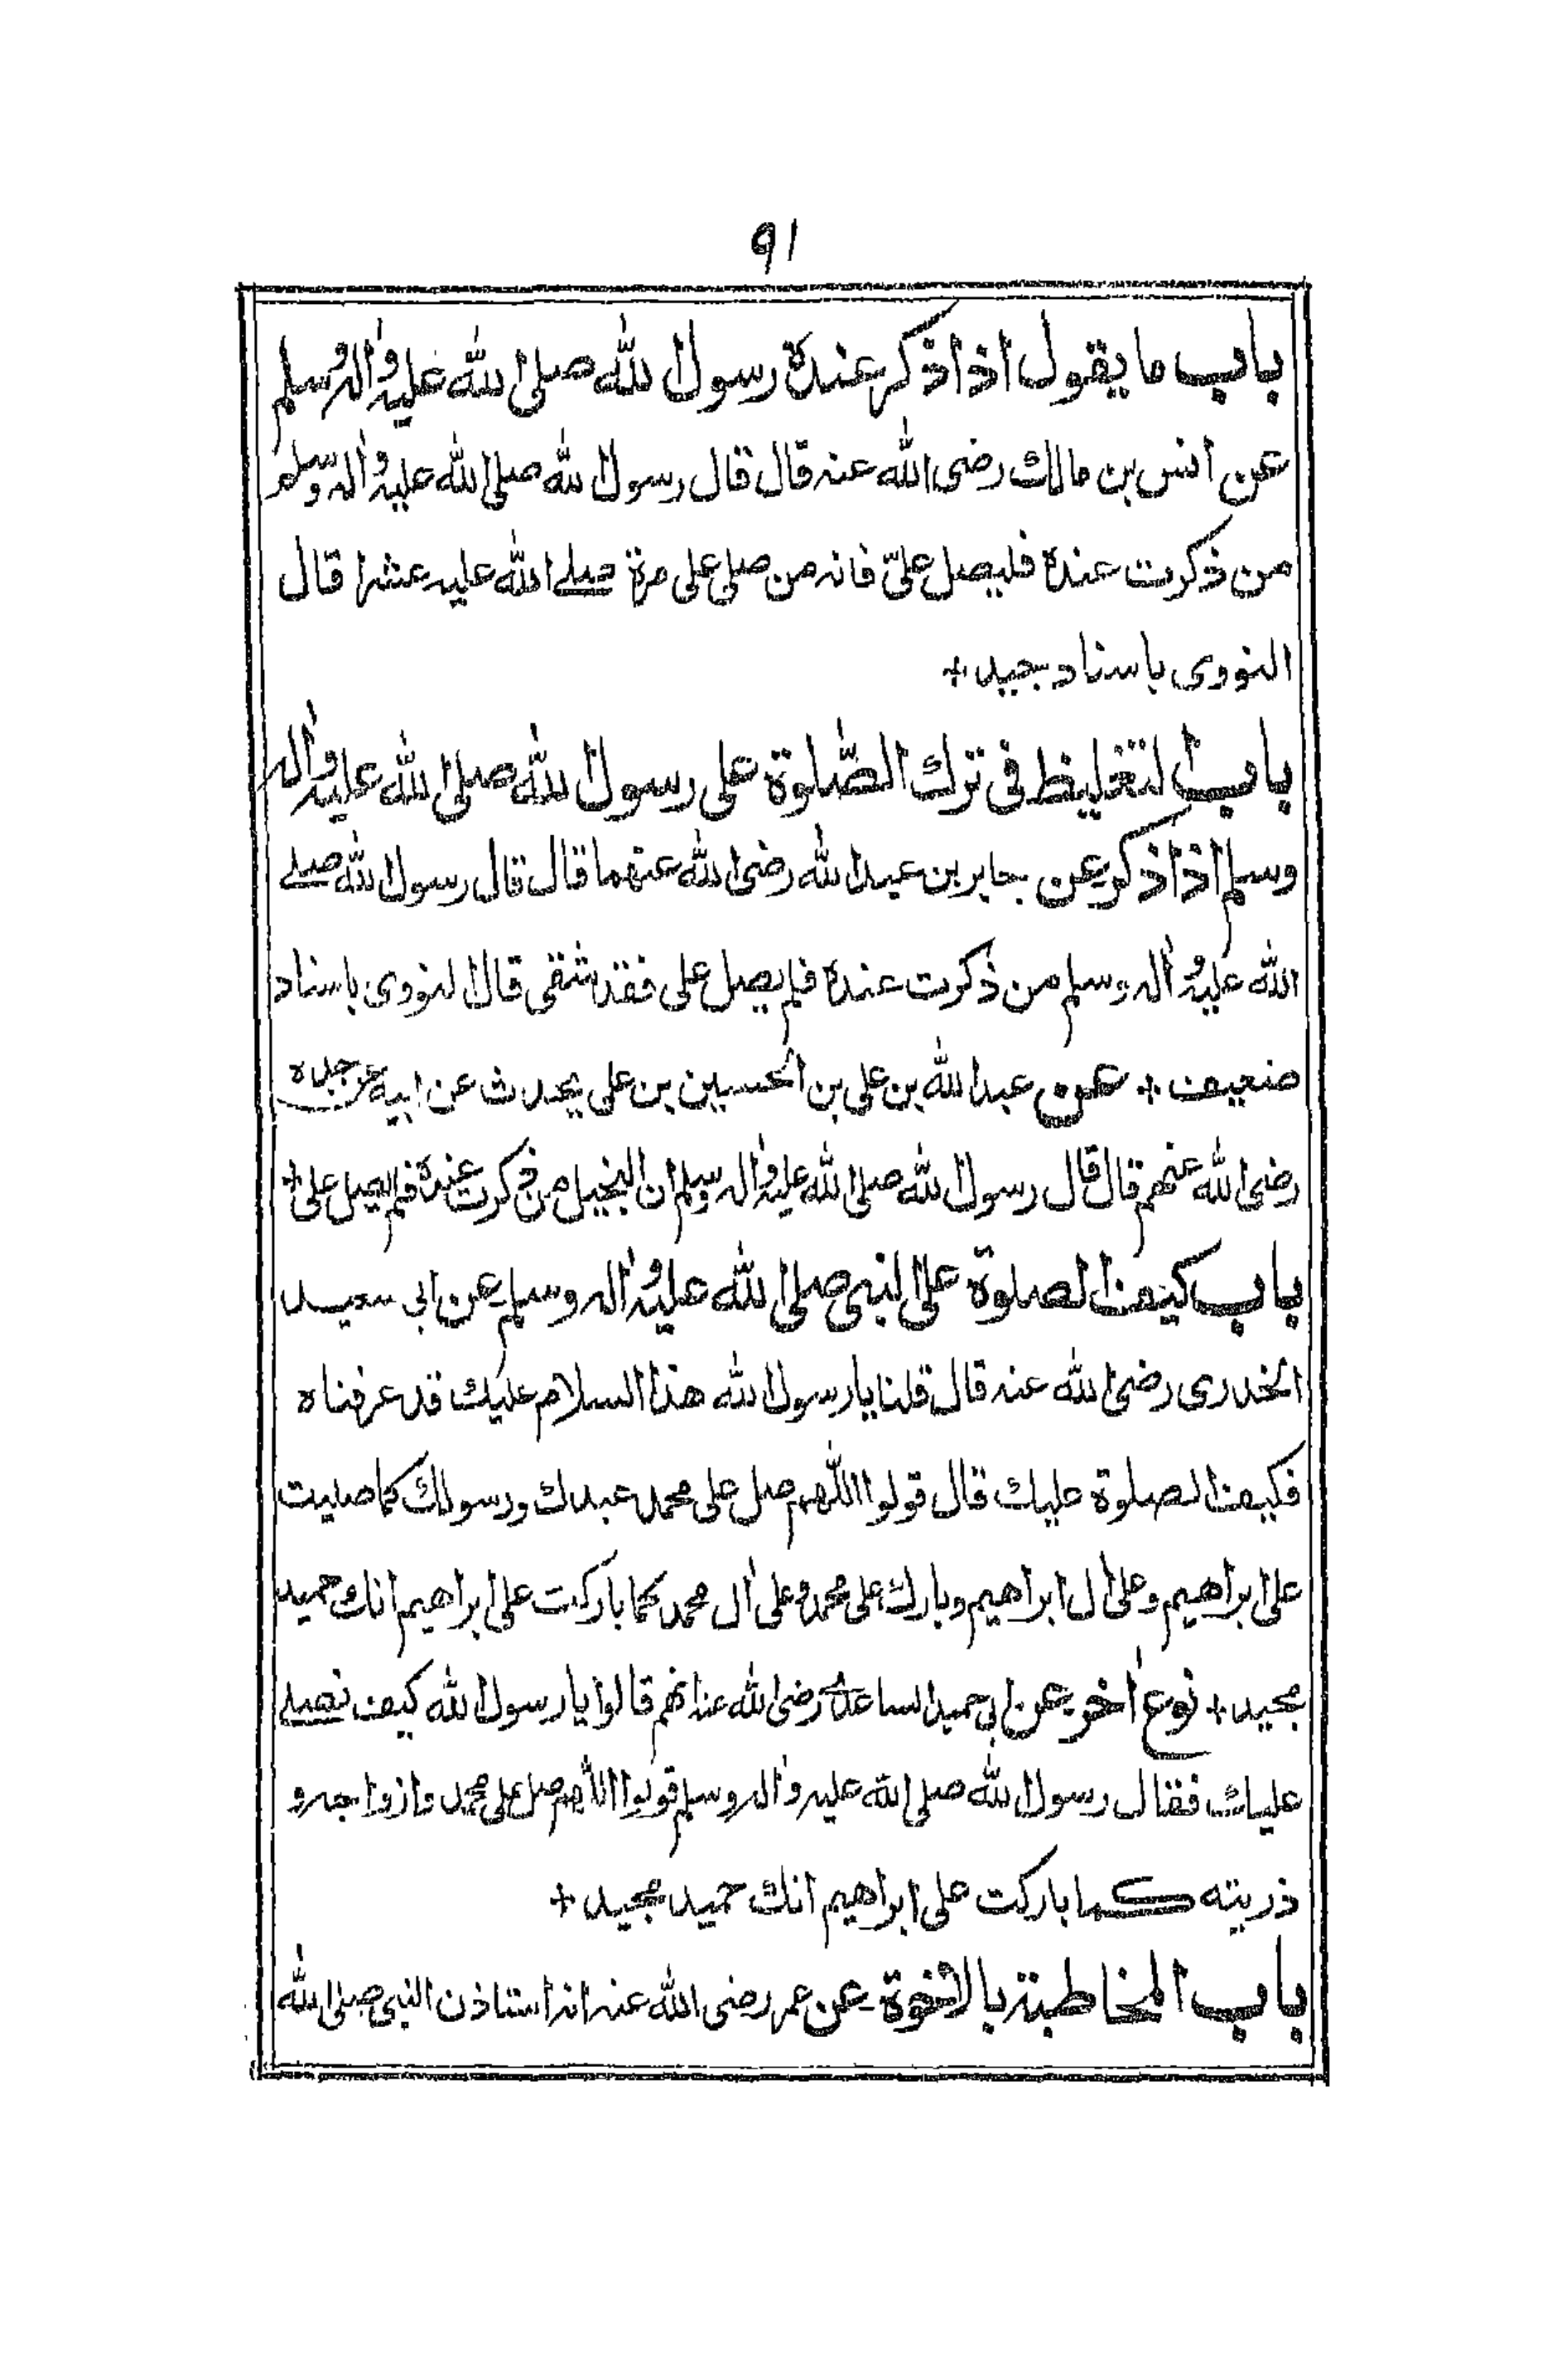 ٩١
باب ما يقول اذا ذكر عنده رسول الله صلى الله عليه واله وسلم
عن انس بن مالك رضى الله عنه قال قال رسول الله صلى الله عليه واله وسلم
من ذكرت عنده فليصل علىّ فانه من صلى على مرة صلے الله عليه عشرا قال
النووى باسناد جيد +
باب التغليظ فى ترك الصّلوة على رسول الله صلى الله عليه واله
وسلم اذا ذكر عن جابر بن عبد الله رضى الله عنهما قال قال رسول الله صلے
الله عليه واله وسلم من ذكرت عنده فلم يصل على فقد شقى قال النووى باسناد
ضعيف + عن عبد الله بن على بن الحسين بن على يحدث عن ابيه عن جده
رضى الله عنهم قال قال رسول الله صلى الله عليه واله وسلم ان البخيل من ذكرت عنده فلم يصل على +
باب كيف الصلوة على النبى صلى الله عليه واله وسلم عن ابى سعيد
الخدرى رضى الله عنه قال قلنا يا رسول الله هذا السلام عليك قد عرفناه
فكيف الصلوة عليك قال قولوا اللهم صل على محمد عبدك ورسولك كما صليت
على ابراهيم وعلى ال ابراهيم وبارك على محمد وعلى اٰل محمد كما باركت على ابراهيم انك حميد
مجيد + نوع اٰخر عن ابى حميد الساعدى رضى الله عنه انهم قالوا يا رسول الله كيف نصلے
عليك فقال رسول الله صلى الله عليه واله وسلم قولوا اللهم صل على محمد وازواجه و
ذريته كما باركت على ابراهيم انك حميد مجيد +
باب المخاطبة بالاخوة عن عمر رضى الله عنه انه استاذن النبى صلى الله